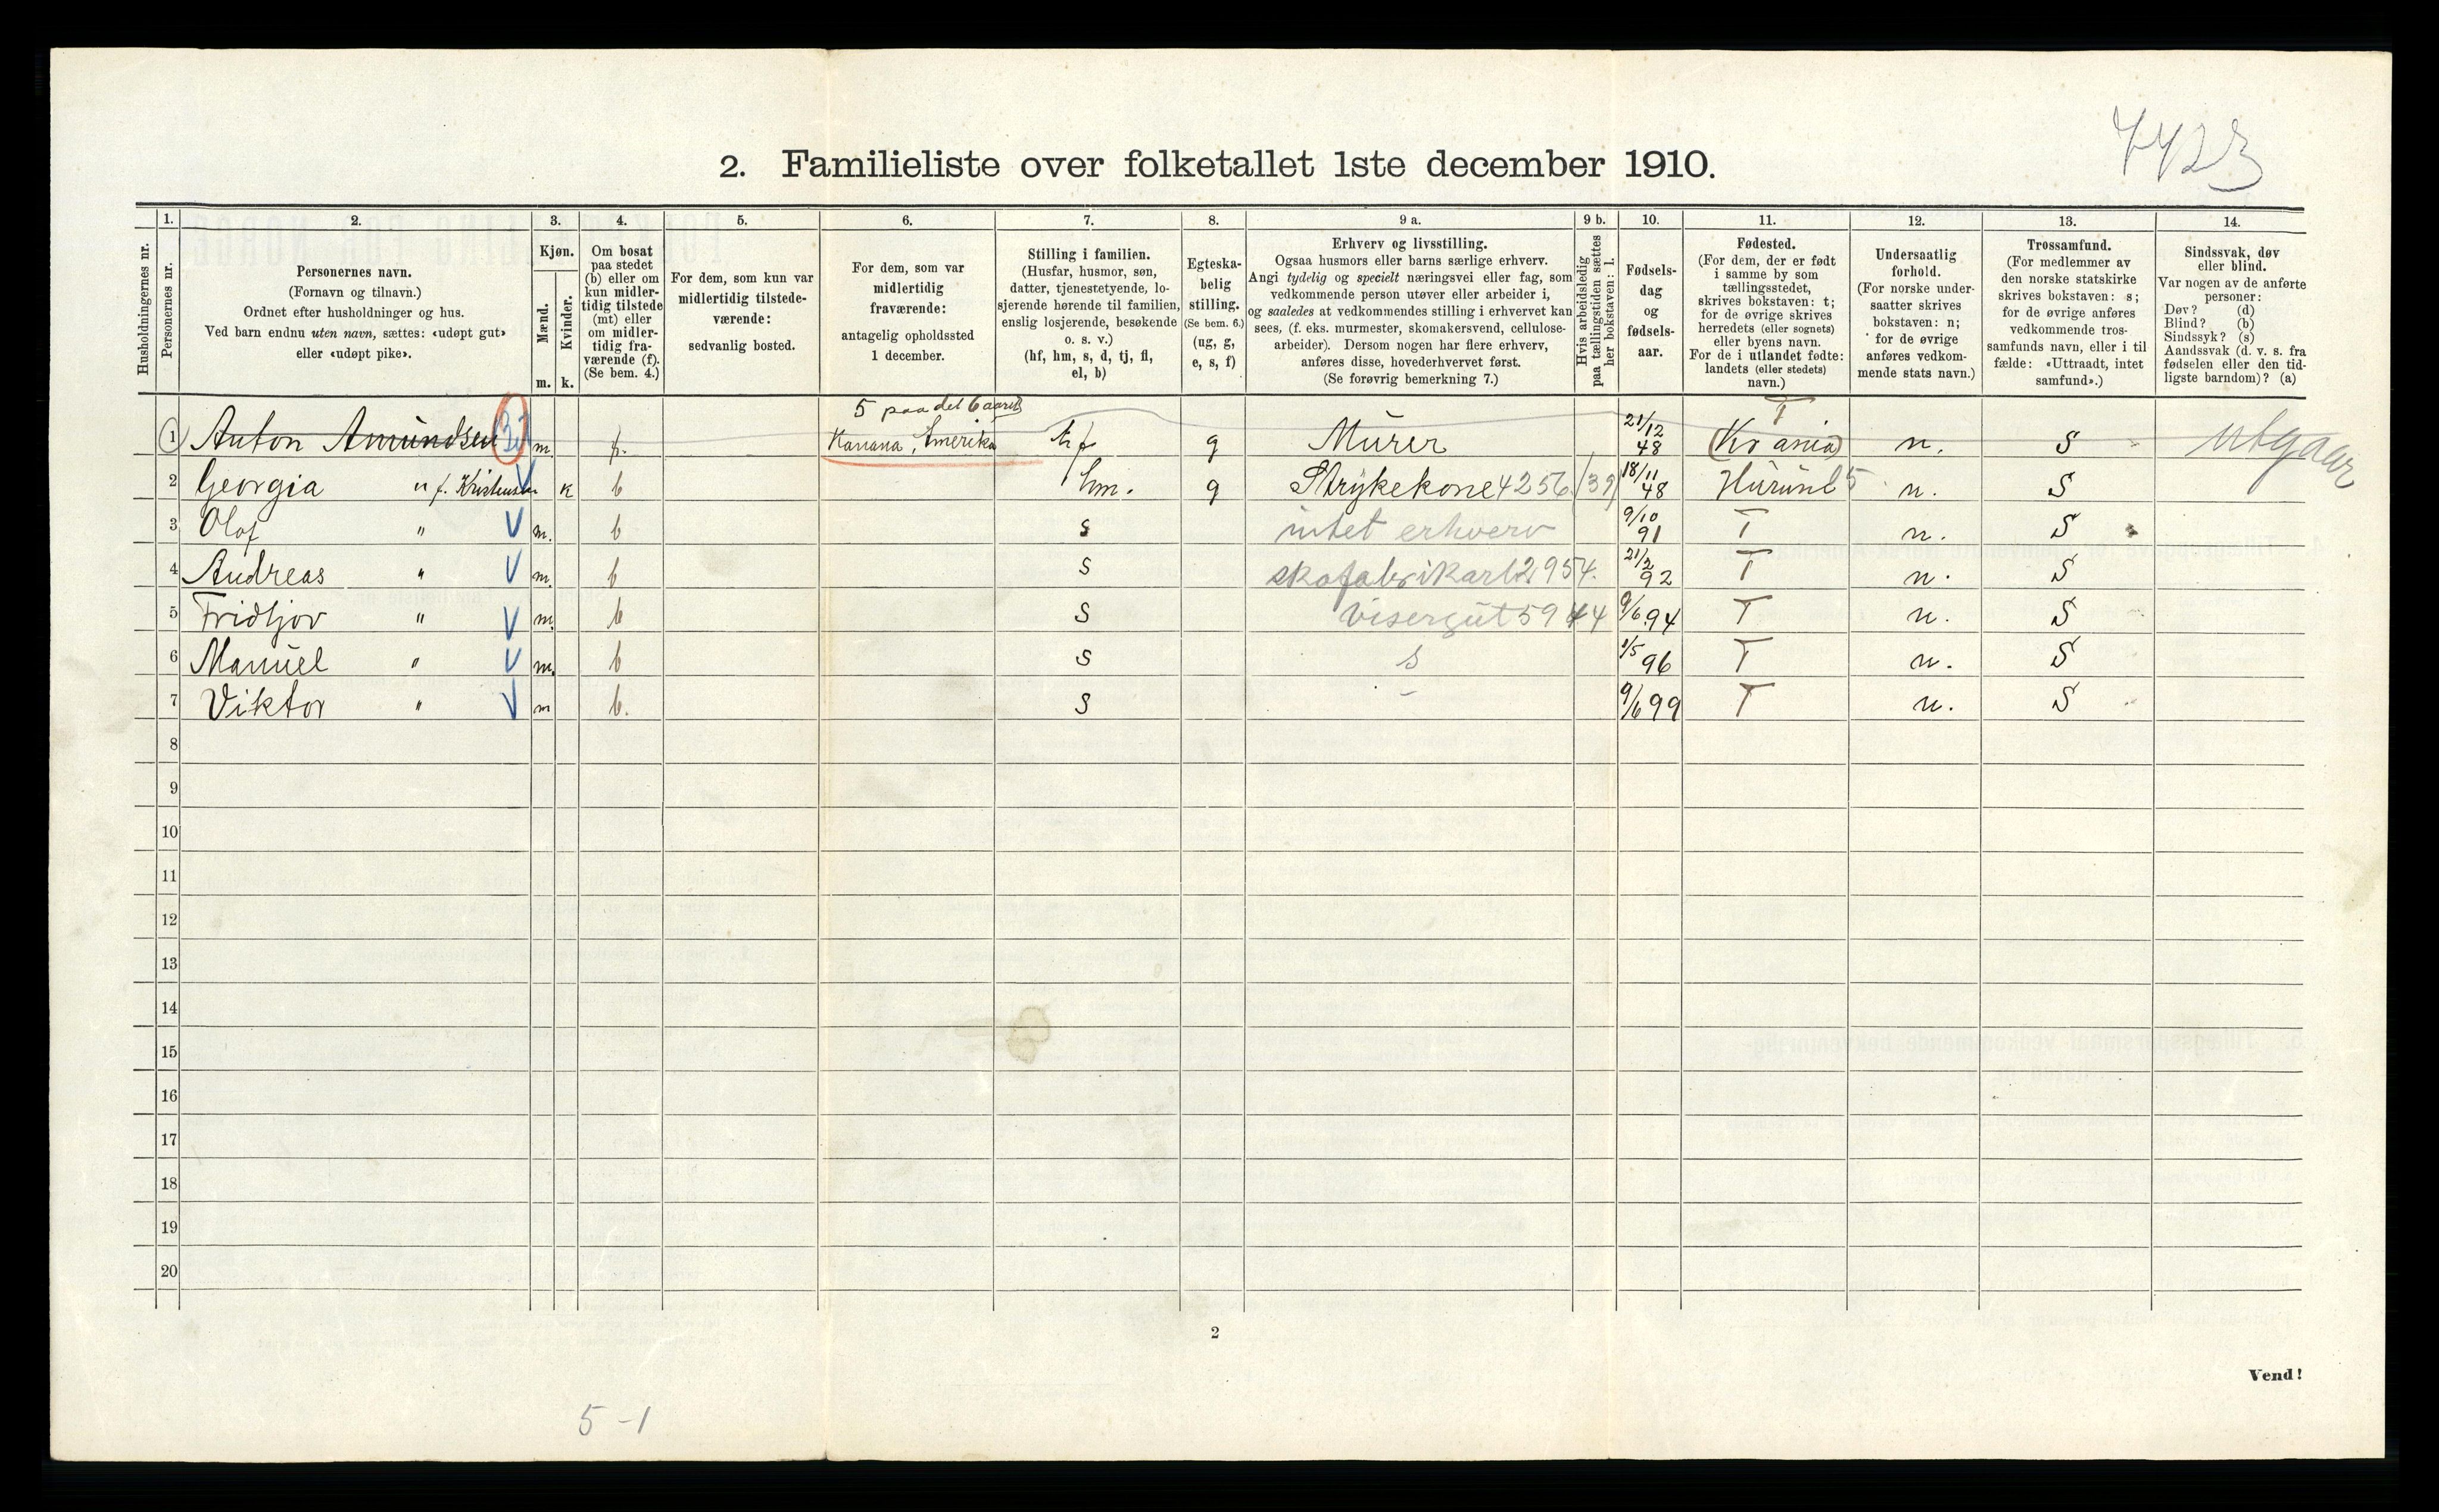 7423
2. Familieliste over folketallet 1ste december 1910.
1. 2. 3. 4. 5. 6. 7. 8. 9 a. 9 b. 10. 11. 12. 13. 14.
Husholdningernes nr.
Personernes nr.
Personernes navn.
(Fornavn og tilnavn.)
Ordnet efter husholdninger og hus.
Ved barn endnu uten navn, sættes: «udøpt gut»
eller «udøpt pike».
Kjøn.
Mænd.
m.
Kvinder.
k.
Om bosat
paa stedet
(b) eller om
kun midler-
tidig tilstede
(mt) eller
om midler-
tidig fra-
værende (f).
(Se bem. 4.)
For dem, som kun var
midlertidig tilstede-
værende:
sedvanlig bosted.
For dem, som var
midlertidig
fraværende:
antagelig opholdssted
1 december.
Stilling i familien.
(Husfar, husmor, søn,
datter, tjenestetyende, lo-
sjerende hørende til familien,
enslig losjerende, besøkende
o. s. v.)
(hf, hm, s, d, tj, fl,
el, b)
Egteska-
belig
stilling.
(Se bem. 6.)
(ug, g,
e, s, f)
Erhverv og livsstilling.
Ogsaa husmors eller barns særlige erhverv.
Angi tydelig og specielt næringsvei eller fag, som
vedkommende person utøver eller arbeider i,
og saaledes at vedkommendes stilling i erhvervet kan
sees, (f. eks. murmester, skomakersvend, cellulose-
arbeider). Dersom nogen har flere erhverv,
anføres disse, hovederhvervet først.
(Se forøvrig bemerkning 7.)
Hvis arbeidsledig
paa tællingstiden sættes
her bokstaven: l.
Fødsels-
dag
og
fødsels-
aar.
Fødested.
(For dem, der er født
i samme by som
tællingsstedet,
skrives bokstaven: t;
for de øvrige skrives
herredets (eller sognets)
eller byens navn.
For de i utlandet fødte:
landets (eller stedets)
navn.)
Undersaatlig
forhold.
(For norske under-
saatter skrives
bokstaven: n;
for de øvrige
anføres vedkom-
mende stats navn.)
Trossamfund.
(For medlemmer av
den norske statskirke
skrives bokstaven: s;
for de øvrige anføres
vedkommende tros-
samfunds navn, eller i til
fælde: «Uttraadt, intet
samfund».)
Sindssvak, døv
eller blind.
Var nogen av de anførte
personer:
Døv? (d)
Blind? (b)
Sindssyk? (s)
Aandssvak (d. v. s. fra
fødselen eller den tid-
ligste barndom)? (a)
5 paa det 6 aaret T
1 Anton Amundsen m. f. Amerika hf g Murer 21/12 48 (Kr ania) n. S utgaar
2 Georgia " f. Kristensen k b hm. g Strykekone 4256 (39) 18/11 48 Hurum 5 n. S
3 Olaf " m. b s intet erhverv 9/10 91 T n. S
4 Andreas " m. b s skofabrikarb 2954. 21/2 92 T n. S
5 Fridtjov " m. b s visergut 5944 9/6 94 T n. S
6 Manuel " m. b s s 1/5 96 T n. S
7 Viktor " m b. s - 9/6 99 T n. S
8
9
10
11
12
13
14
15
16
17
18
19
20
2
Vend!
5-1